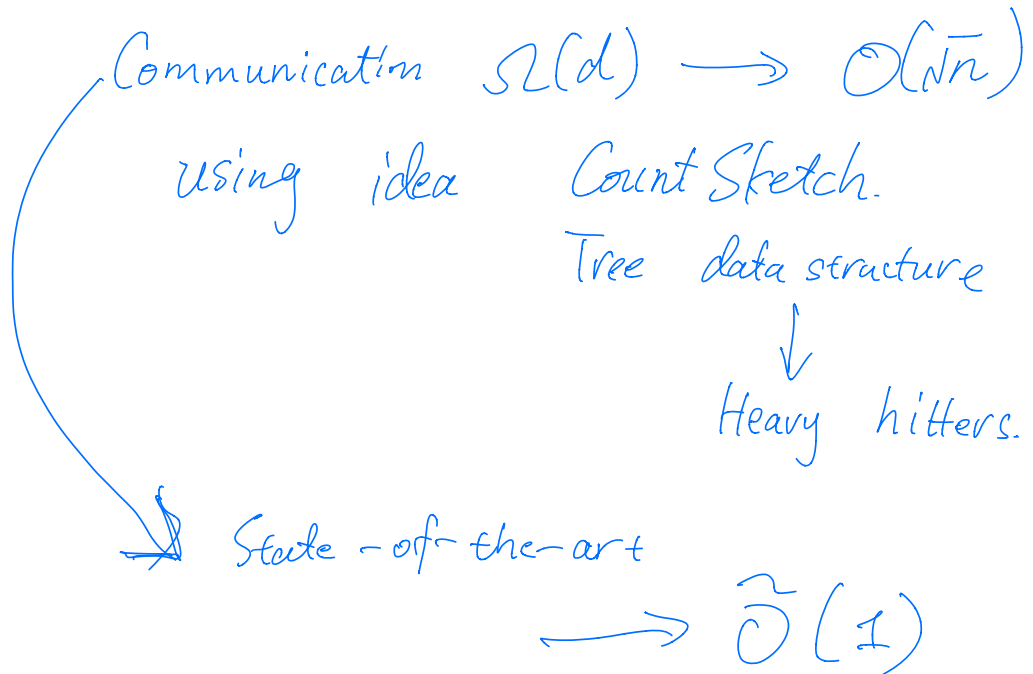 Communication Ω(d) → O(√n)
using idea Count Sketch.
Tree data structure
↓
Heavy hitters.
State-of-the-art
→ Õ(1)